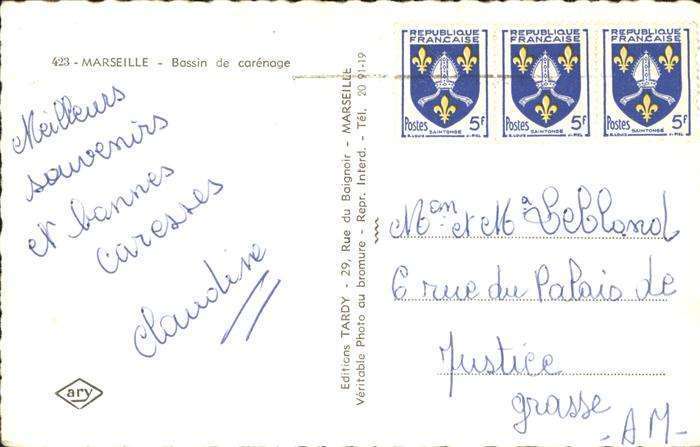 423 - MARSEILLE - Bassin de carénage
Meilleurs
souvenirs
et bonnes
caresses
Claudine
ary
Editions TARDY - 29, Rue du Baignoir - MARSEILLE - Tél. 20 91-19
Véritable Photo au bromure - Repr. Interd.
REPUBLIQUE FRANÇAISE
Postes 5f
SAINTONGE
R. LOUIS J. PIEL
REPUBLIQUE FRANÇAISE
Postes 5f
SAINTONGE
R. LOUIS J. PIEL
REPUBLIQUE FRANÇAISE
Postes 5f
SAINTONGE
R. LOUIS J. PIEL
Mon et Ma Leblond
6 rue du Palais de
Justice
grasse
- A.M -